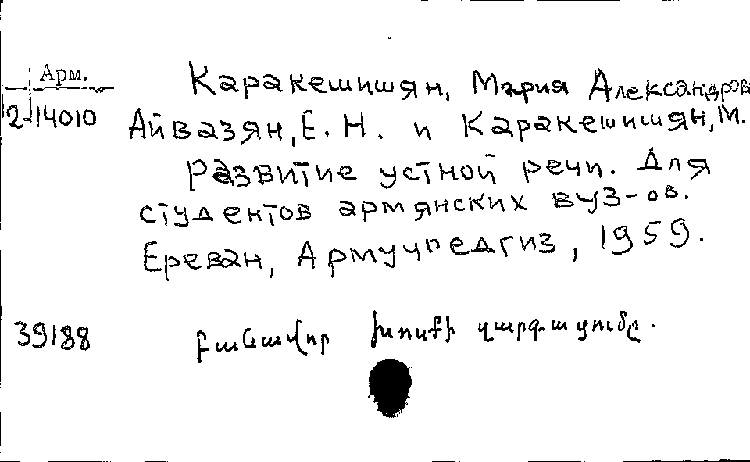 Арм.
2-14010
Каракешишян, Мария Александров
Айвазян, Е. Н. и Каракешишян, М.
Развитие устной речи. Для
студентов армянских вуз-ов.
Ереван, Армучпедгиз, 1959.
39188
Բանավոր խոսքի զարգացումը.